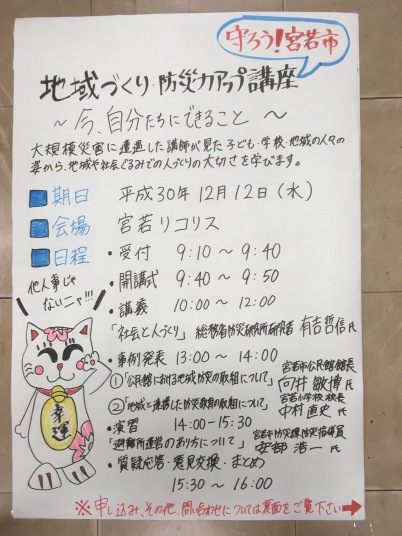 守ろう!宮若市
地域づくり・防災力アップ講座
～今、自分たちにできること～
大規模災害に遭遇した講師が見た子ども・学校・地域の人々の
姿から、地域や社会ぐるみでの人づくりの大切さを学びます。
期日 平成30年12月12日(水)
会場 宮若リコリス
日程 ・受付 9:10～9:40
・開講式 9:40～9:50
・講義 10:00～12:00
「社会と人づくり」 総務省防災 研究者 有吉哲信氏
他人事じゃ
ないニャ!!!
・事例発表 13:00～14:00
①「公民館における地域防災の取組について」 宮若市公民館 館長
向井敏博氏
②「地域と連携した防災教育の取組について」 宮若小学校 校長
中村直史氏
・演習 14:00-15:30
「避難所運営のあり方について」 宮若市防災課防災指導員
安部浩一氏
・質疑応答・意見交換・まとめ
15:30～16:00
幸運
※申し込み、その他、問い合わせについては裏面をご覧下さい→